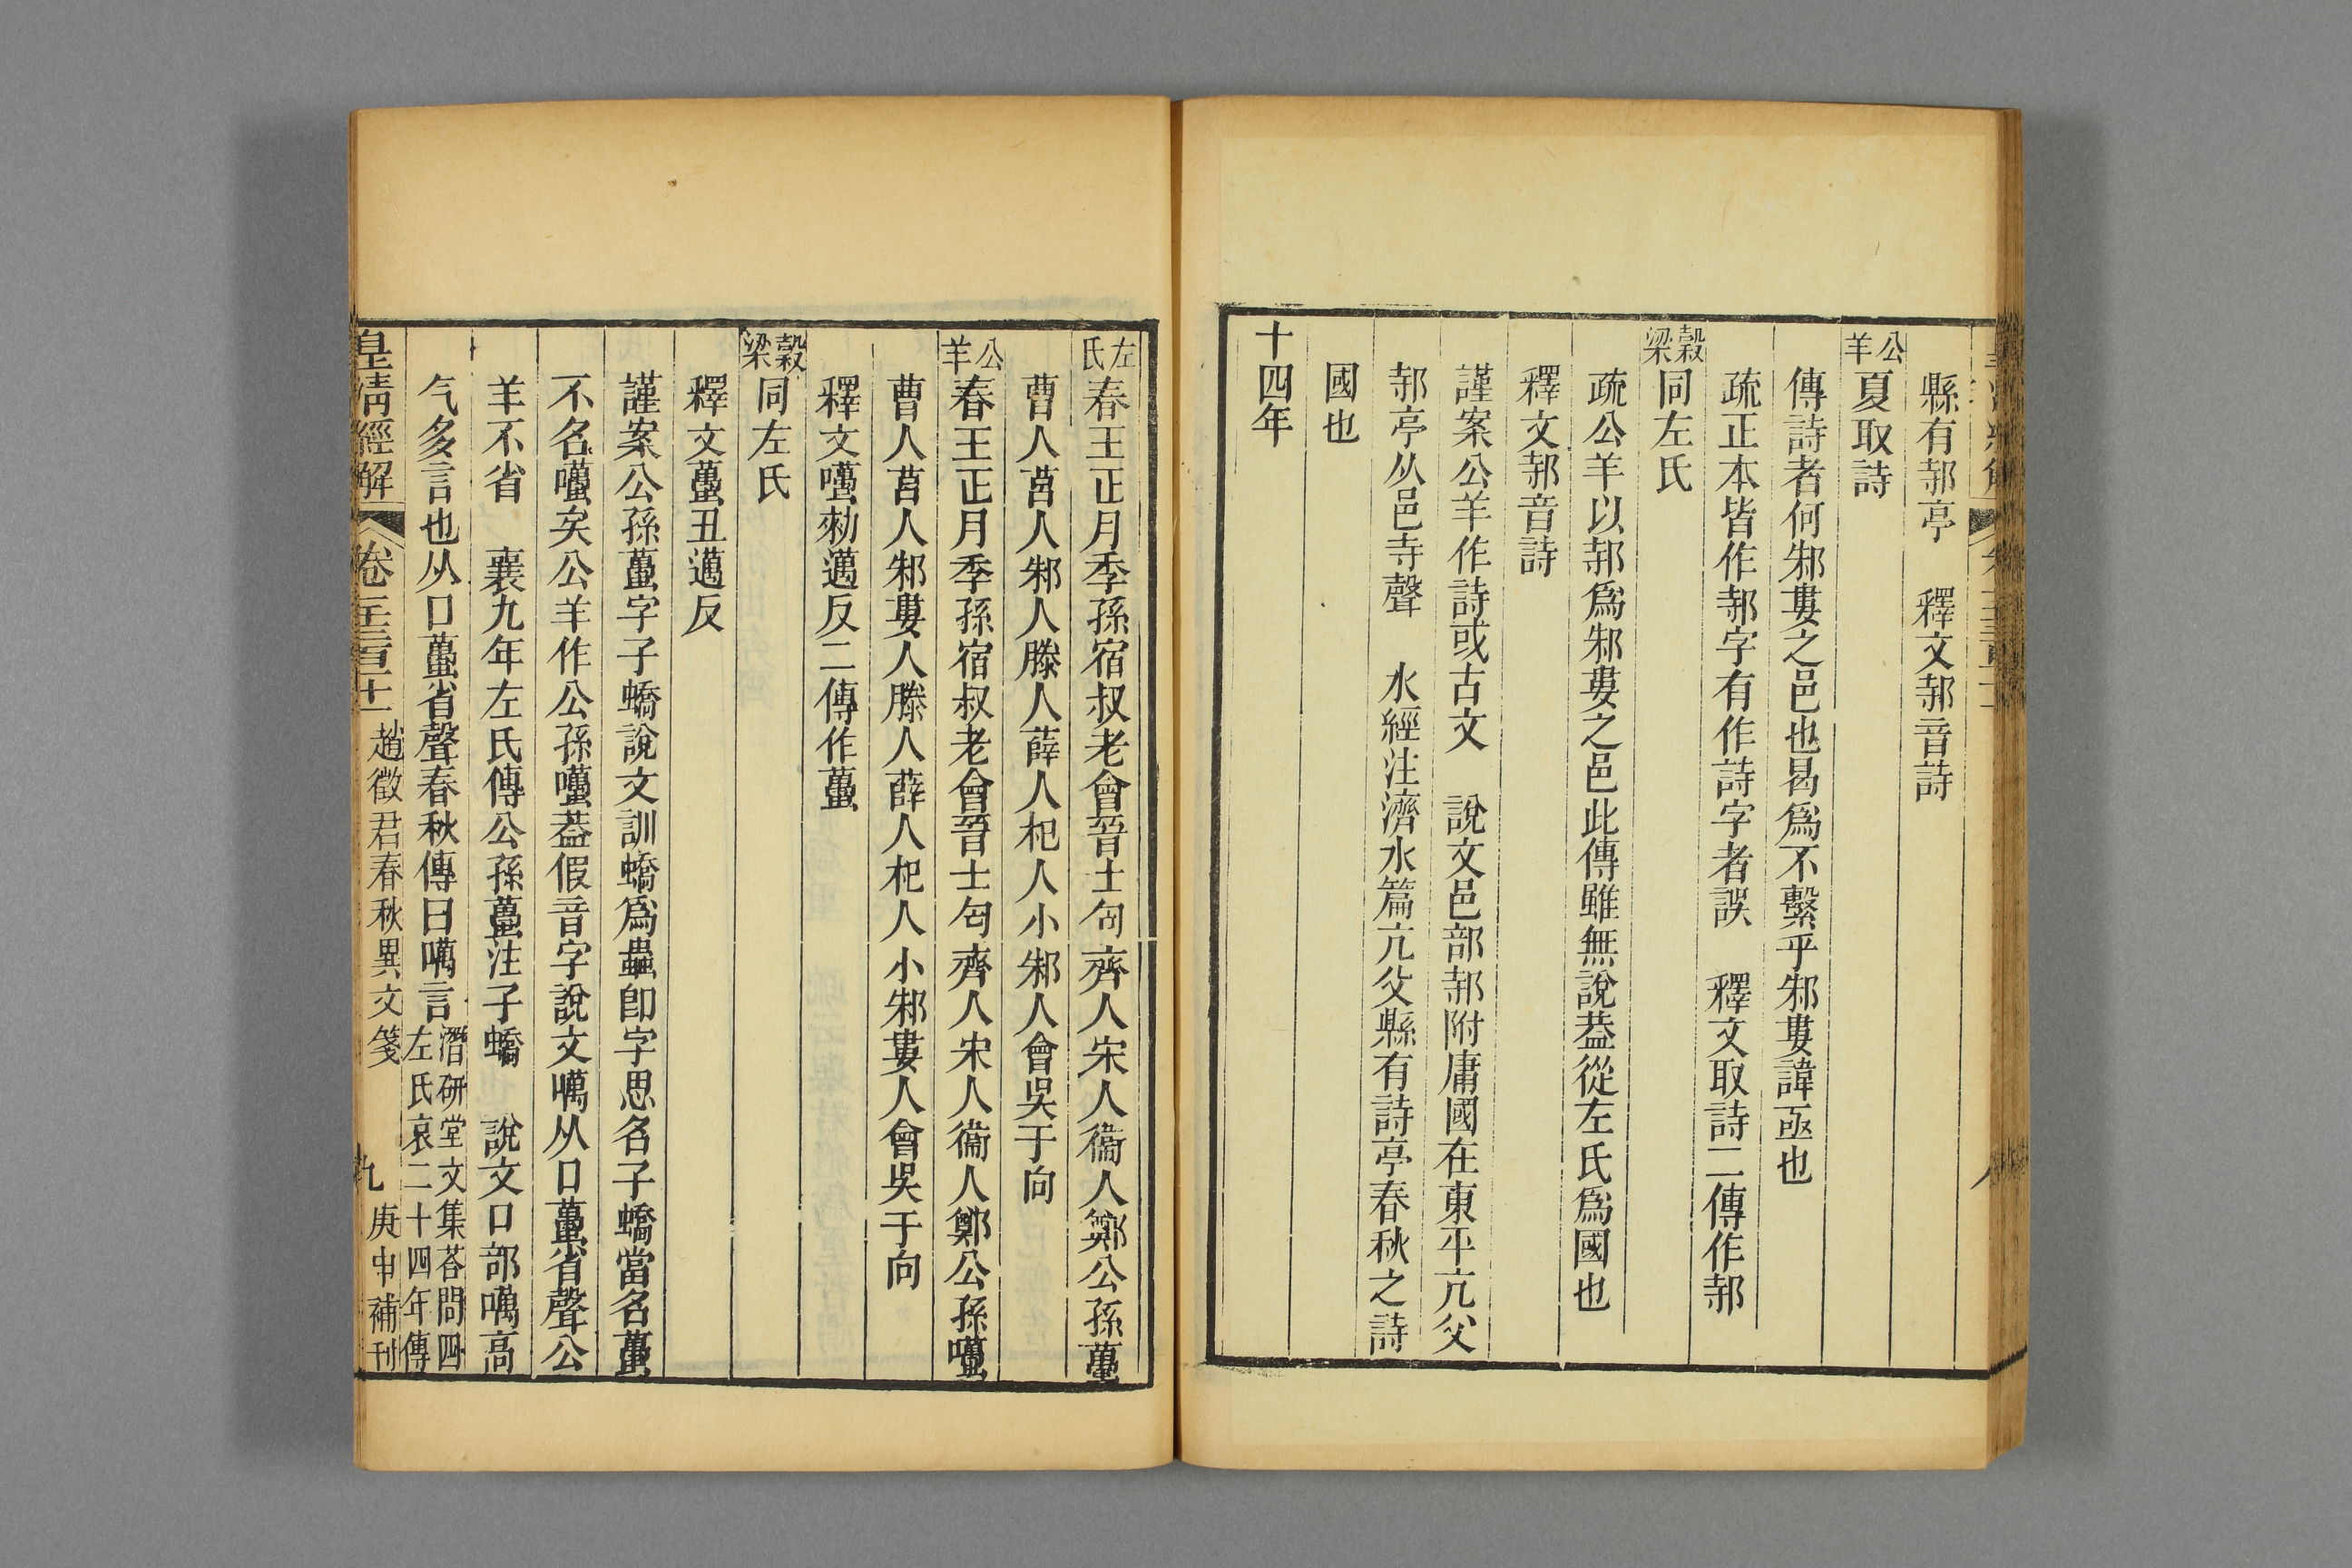 縣有邿亭　釋文邿音詩
公羊夏取詩
傳詩者何邾婁之邑也曷爲不繫乎邾婁諱亟也
疏正本皆作邿字有作詩字者誤　釋文取詩二傳作邿
穀梁同左氏
疏公羊以邿爲邾婁之邑此傳雖無說葢從左氏爲國也
釋文邿音詩
謹案公羊作詩或古文　說文邑部邿附庸國在東平亢父
邿亭从邑寺聲　水經注濟水篇亢父縣有詩亭春秋之詩
國也
十四年
左氏春王正月季孫宿叔老會晉士匄齊人宋人衞人鄭公孫蠆
曹人莒人邾人滕人薛人杞人小邾人會吳于向
公羊春王正月季孫宿叔老會晉士匄齊人宋人衞人鄭公孫囆
曹人莒人邾婁人滕人薛人杞人小邾婁人會吳于向
釋文囆勑邁反二傳作蠆
穀梁同左氏
釋文蠆丑邁反
謹案公孫蠆字子蟜說文訓蟜爲蟲卽字思名子蟜當名蠆
不名囆矣公羊作公孫囆葢假音字說文噧从口蠆省聲公
羊不省　襄九年左氏傳公孫蠆注子蟜　說文口部噧高
气多言也从口蠆省聲春秋傳曰噧言潛研堂文集荅問四
左氏哀二十四年傳
皇清經解　卷一千三百十一　趙徵君春秋異文箋　九　庚申補刊